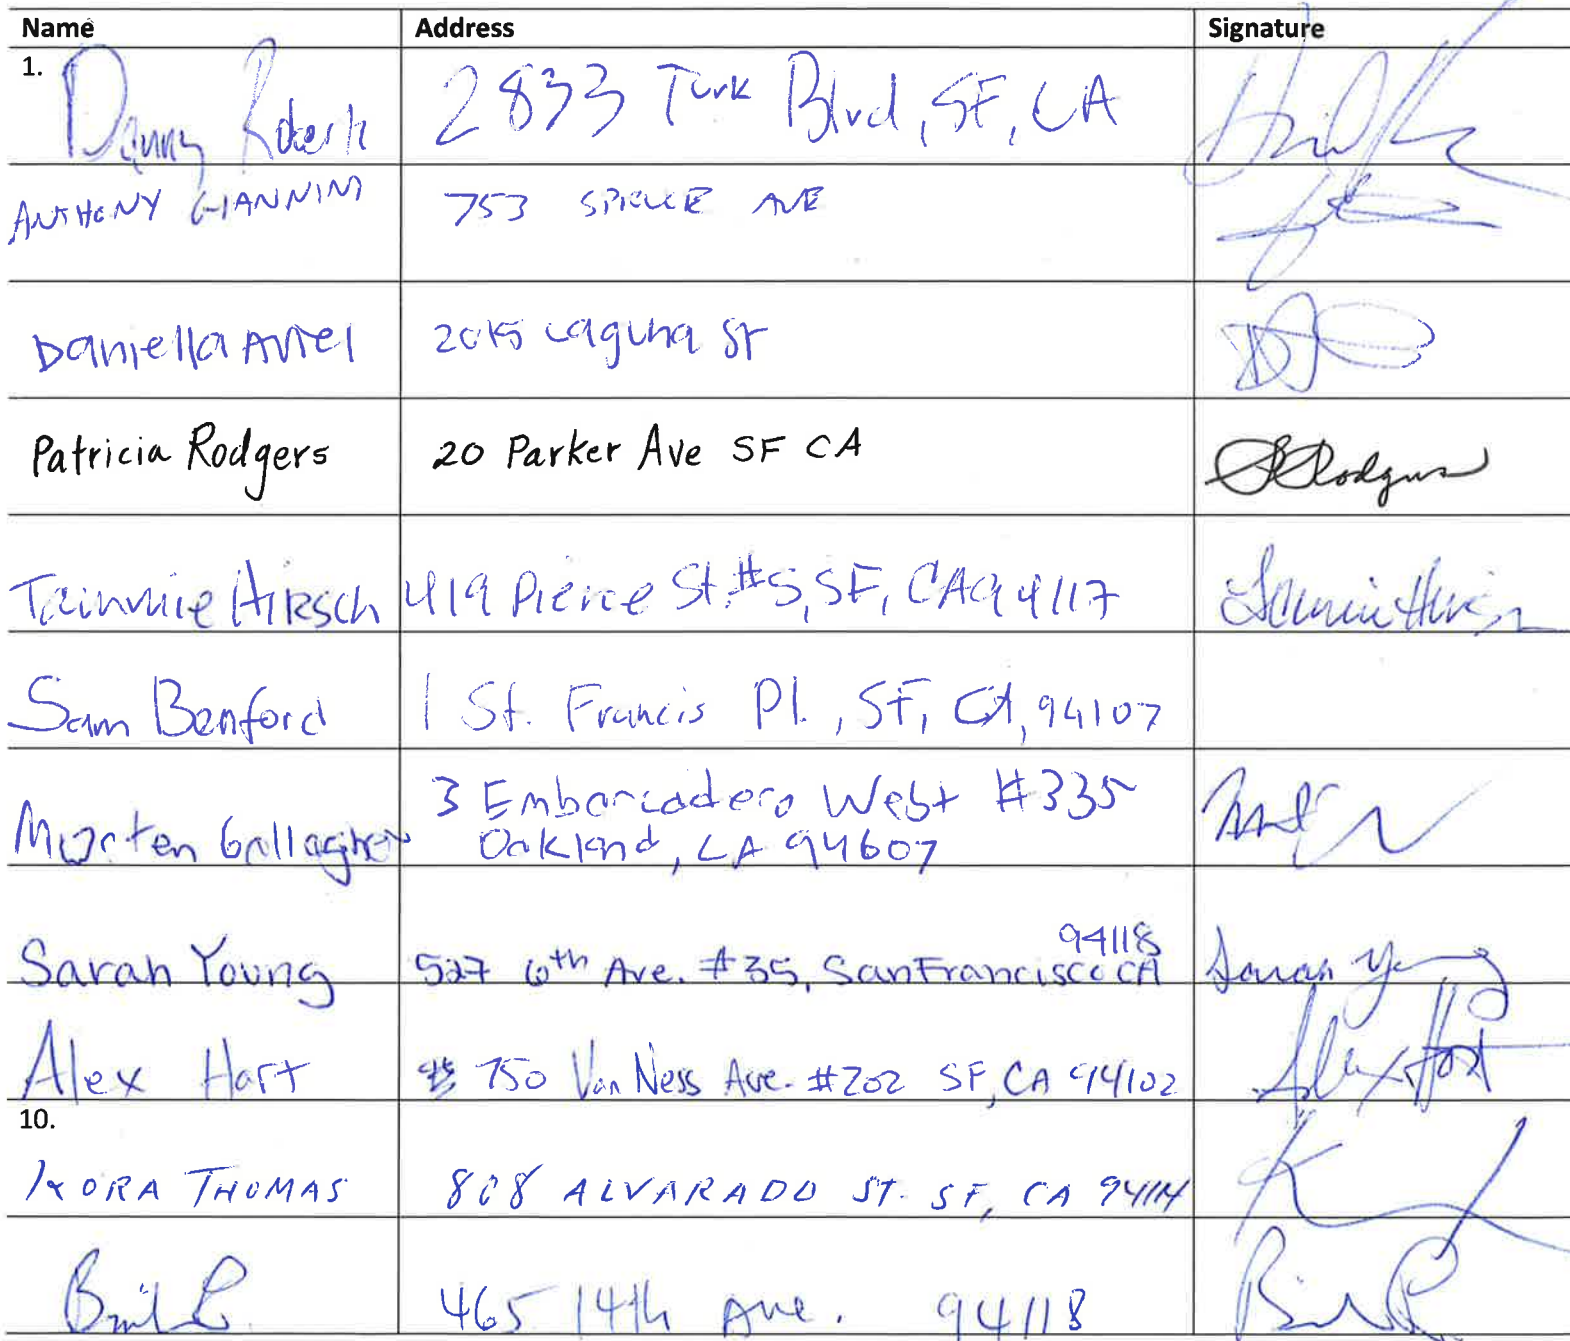 Name Address Signature
1. Danny Roberts 2833 Turk Blvd, SF, CA
ANTHONY GIANNINI 753 SPRUCE AVE
Daniella Ariel 2015 Laguna St
Patricia Rodgers 20 Parker Ave SF CA PRodgers
Tammie Hirsch 419 Pierce St. #5, SF, CA 94117 Tammie Hirsch
Sam Benford 1 St. Francis Pl., SF, CA, 94107
Morten Gallagher 3 Embarcadero West #335
Oakland, CA 94607
94118
Sarah Young 527 6th Ave. #35, San Francisco CA Sarah Young
Alex Hart 750 Van Ness Ave. #202 SF, CA 94102 Alex Hart
10.
KORA THOMAS 808 ALVARADO ST. SF, CA 94114
465 14th Ave. 94118